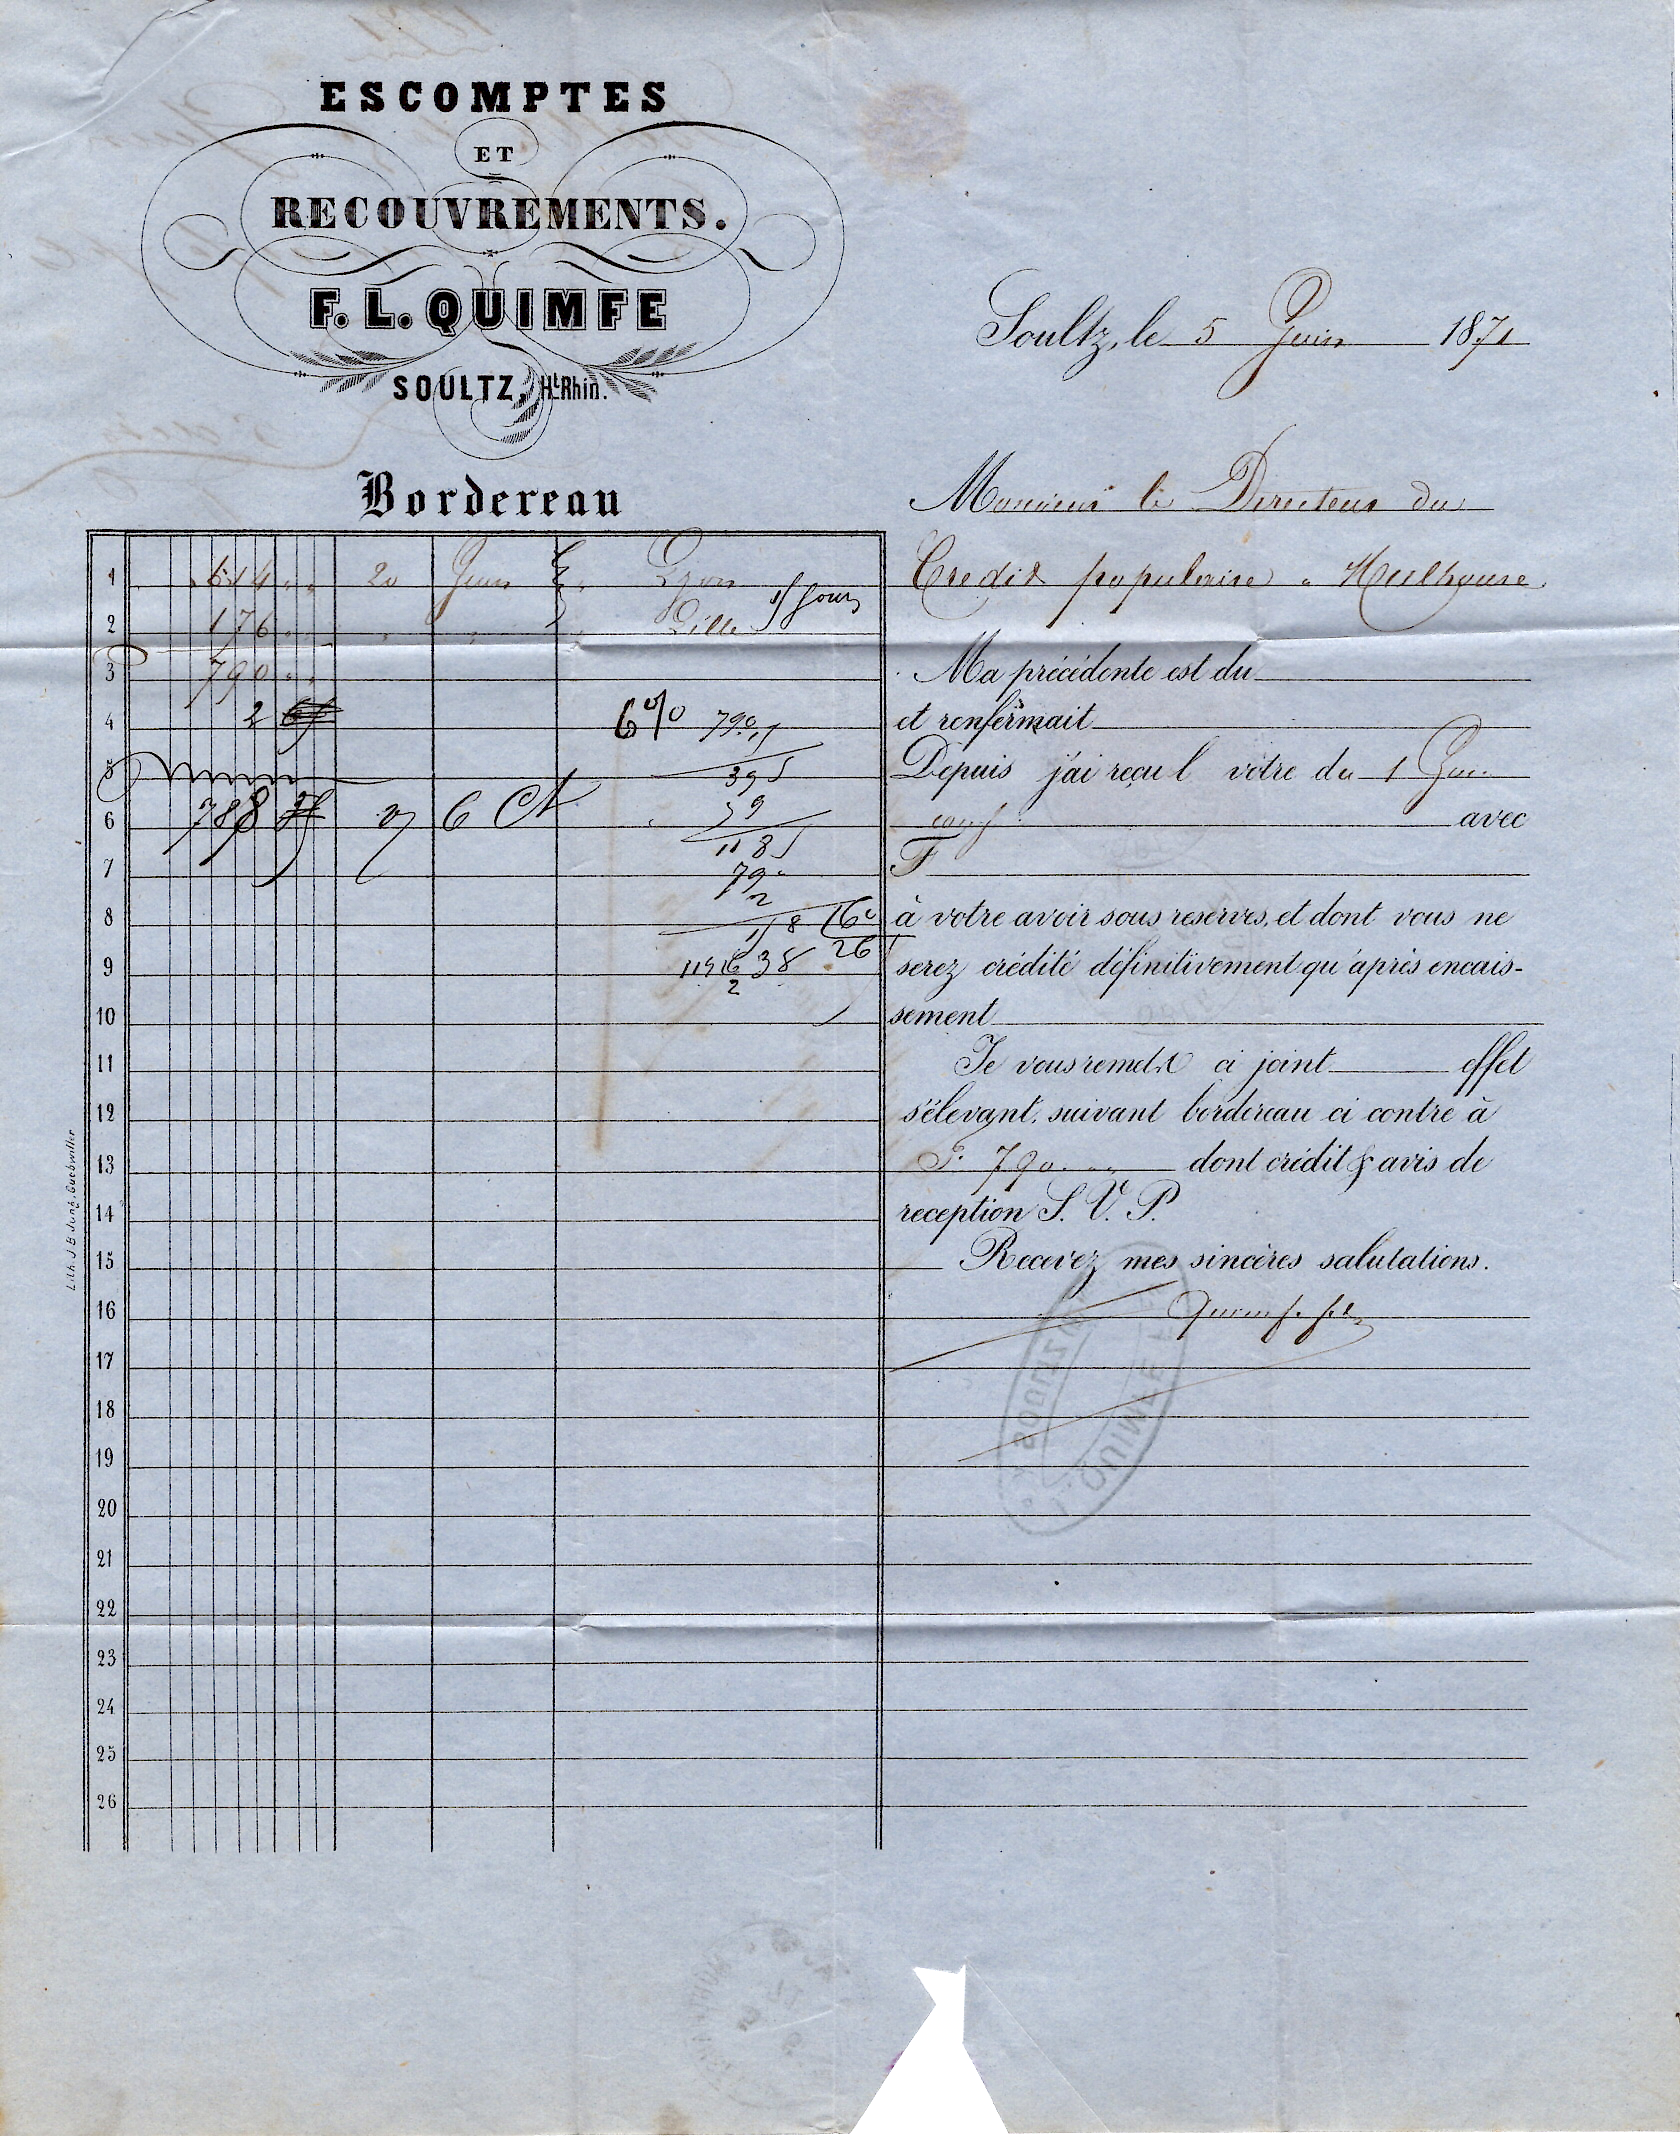 ESCOMPTES
ET
RECOUVREMENTS.
F. L. QUIMFE
SOULTZ, Ht Rhin.
Soultz, le 5 Juin 1871
Bordereau
Monsieur le Directeur du
Credit populaire a Mulhouse.
1 614 " " 20 Juin Lyon
15 jours
2 176 " " " " Lille
3 790 " "
4 2
6 % 790
5
395
6 788 6 Ct
79
1185
7
790
2
8
9
10
11
12
13
14
15
16
17
18
19
20
21
22
23
24
25
26
Ma précédente est du
et renfermait
Depuis j'ai reçu l votre du 1
avec
F
à votre avoir sous reserves, et dont vous ne
serez crédité définitivement qu'après encais-
sement
Je vous remets ci joint effet
s'élevant, suivant bordereau ci contre à
F. 790 " " dont crédit & avis de
reception S. V. P.
Recevez mes sincères salutations.
Lith. J B Jung, Guebwiller